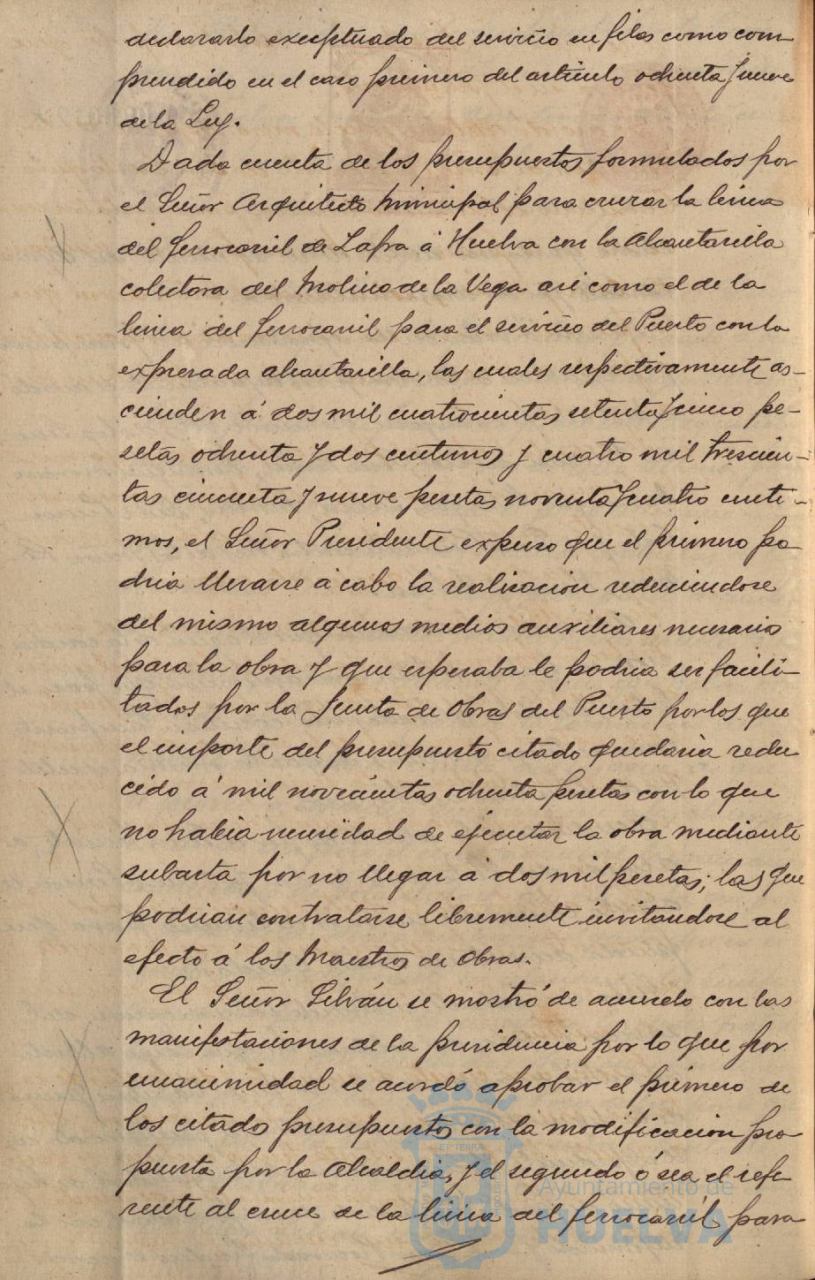 declararlo exceptuado del servicio en filas como com
prendido en el caso primero del articulo ochenta y nueve
de la Ley.
Dada cuenta de los presupuestos formulados por
el Señor Arquitecto Municipal para cruzar la linea
del ferrocarril de Zafra á Huelva con la Alcantarilla
colectora del Molino de la Vega asi como el de la
linea del ferrocarril para el servicio del Puerto con la
expresada alcantarilla, las cuales respectivamente as-
cienden á dos mil cuatrocientas setenta y cinco pe-
setas ochenta y dos centimos y cuatro mil trescien-
tas cincuenta y nueve pesetas noventa y cuatro centi-
mos, el Señor Presidente expuso que el primero po
dria llevarse á cabo la realizacion reduciendose
del mismo algunos medios auxiliares necesarios
para la obra y que esperaba le podria ser facili-
tados por la Junta de Obras del Puerto por los que
el importe del presupuesto citado quedaria redu
cido á mil novecientas ochenta pesetas con lo que
no habia necesidad de ejecutar la obra mediante
subasta por no llegar á dos mil pesetas; las que
podrian contratarse libremente invitandose al
efecto á los Maestros de Obras.
El Señor Silván se mostró de acuerdo con las
manifestaciones de la presidencia por lo que por
unanimidad se acordó aprobar el primero de
los citados presupuestos con la modificacion pro-
puesta por la Alcaldia, y el segundo ó sea el refe
rente al cruce de la linea del ferrocarril para
Ayuntamiento de
HUELVA